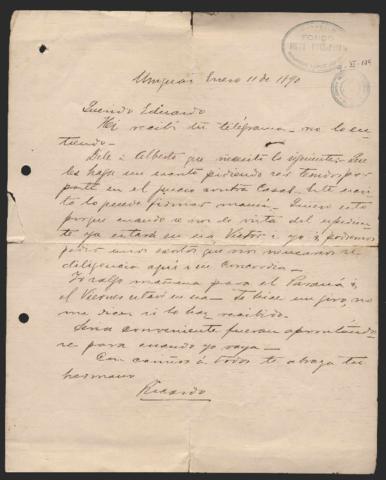 FONDO
Uruguay Enero 11 de 1890
Querido Eduardo
Hoy recibí tu telégrama - no lo en-
tiendo -
Dile a Alberto que necesito lo siguiente: Que
les haga un escrito pidiendo ser tenidos por
parte en el juicio contra Casal. Este escri-
to lo puede firmar mamá. Quiero esto
porque cuando se nos de vista del espedien-
te ya estará en esa Victor i yo i podemos
pedir unos escritos que son necesarios se
diligencia aquí i en Concordia -
Yo salgo mañana para el Paraná i
el Viernes estaré en esa - Te hice un giro, no
me dicen si lo has recibido -
Sería conveniente fueran aprontándo-
se para cuando yo vaya -
Con cariños á todos te abraza tu
hermano
Ricardo